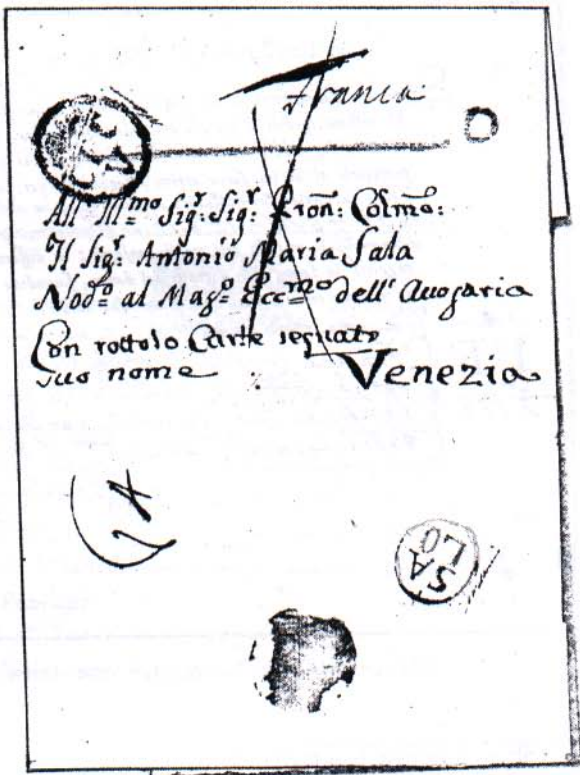 Franca
All' Ill:mo Sig:r Sig:r Pron: Colmo:
Il Sig:r Antonio Maria Sala
Nod:o al Mag:o Ecc:mo dell' Avogaria
Con rottolo Carte segnato
suo nome Venezia
SA
LO